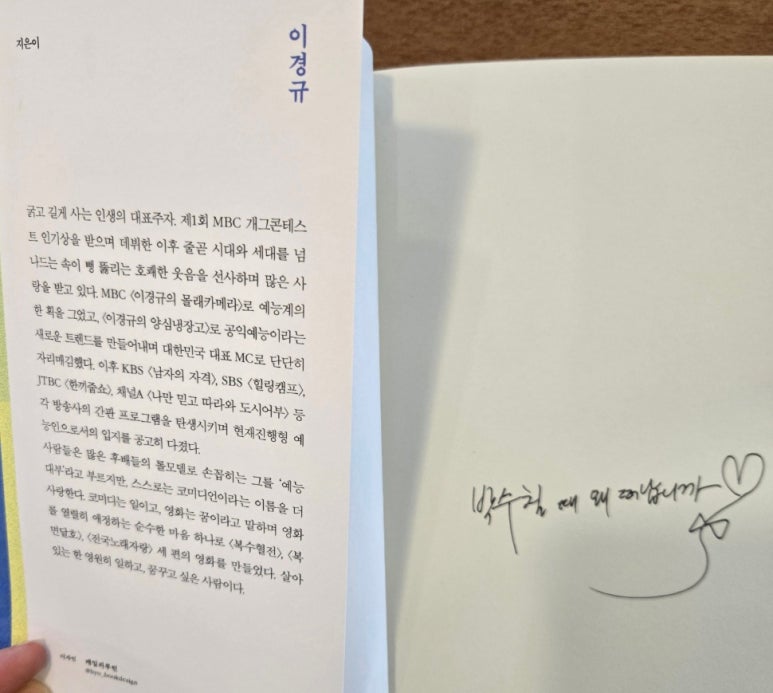 지은이
이경규
굵고 길게 사는 인생의 대표주자. 제1회 MBC 개그콘테스
트 인기상을 받으며 데뷔한 이후 줄곧 시대와 세대를 넘
나드는 속이 뻥 뚫리는 호쾌한 웃음을 선사하며 많은 사
랑을 받고 있다. MBC 〈이경규의 몰래카메라〉로 예능계의
한 획을 그었고, 〈이경규의 양심냉장고〉로 공익예능이라는
새로운 트렌드를 만들어내며 대한민국 대표 MC로 단단히
자리매김했다. 이후 KBS 〈남자의 자격〉, SBS 〈힐링캠프〉,
JTBC 〈한끼줍쇼〉, 채널A 〈나만 믿고 따라와 도시어부〉 등
각 방송사의 간판 프로그램을 탄생시키며 현재진행형 예
능인으로서의 입지를 공고히 다졌다.
사람들은 많은 후배들의 롤모델로 손꼽히는 그를 ‘예능
대부’라고 부르지만, 스스로는 코미디언이라는 이름을 더
사랑한다. 코미디는 일이고, 영화는 꿈이라고 말하며 영화
를 열렬히 애정하는 순수한 마음 하나로 〈복수혈전〉, 〈복
면달호〉, 〈전국노래자랑〉 세 편의 영화를 만들었다. 살아
있는 한 영원히 일하고, 꿈꾸고 싶은 사람이다.
디자인
@kyo_bookdesign
박수칠 때 왜 떠납니까